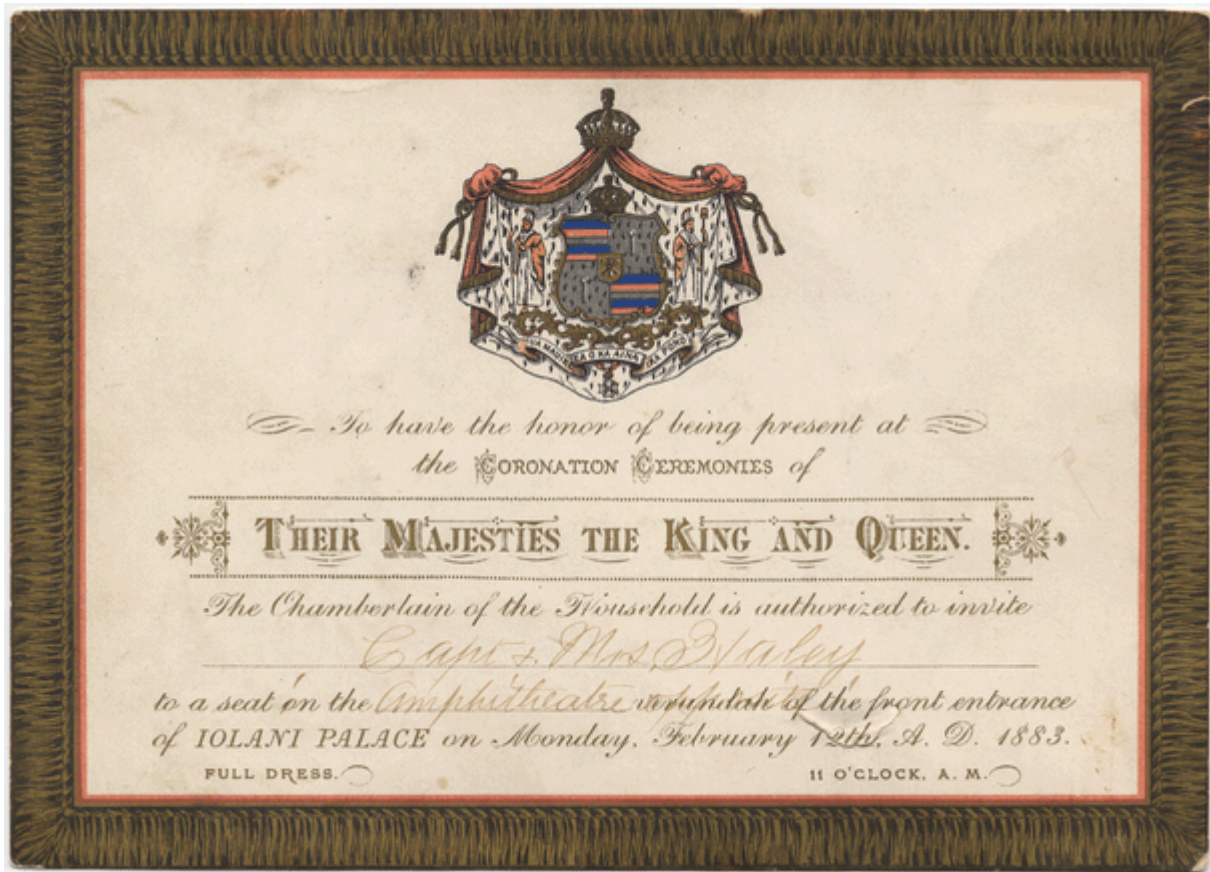 UA MAU KE EA O KA AINA I KA PONO
To have the honor of being present at
the CORONATION CEREMONIES of
THEIR MAJESTIES THE KING AND QUEEN.
The Chamberlain of the Household is authorized to invite
Capt & Mrs Haley
to a seat on the Amphitheatre verandah of the front entrance
of IOLANI PALACE on Monday, February 12th, A. D. 1883.
FULL DRESS. 11 O'CLOCK, A. M.